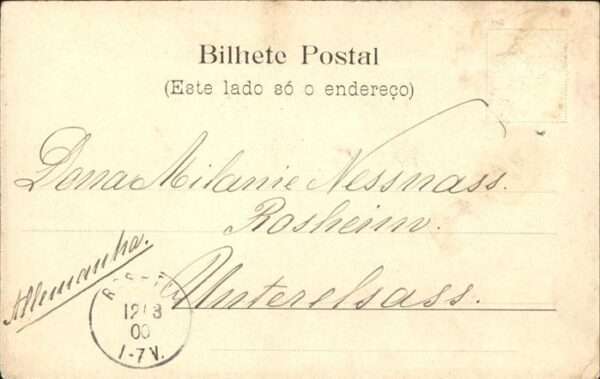 Bilhete Postal
(Este lado só o endereço)
Dona Milanie Nessnass.
Rosheim.
Allemanha.
Unterelsass.
12 8
00
1-7 V.